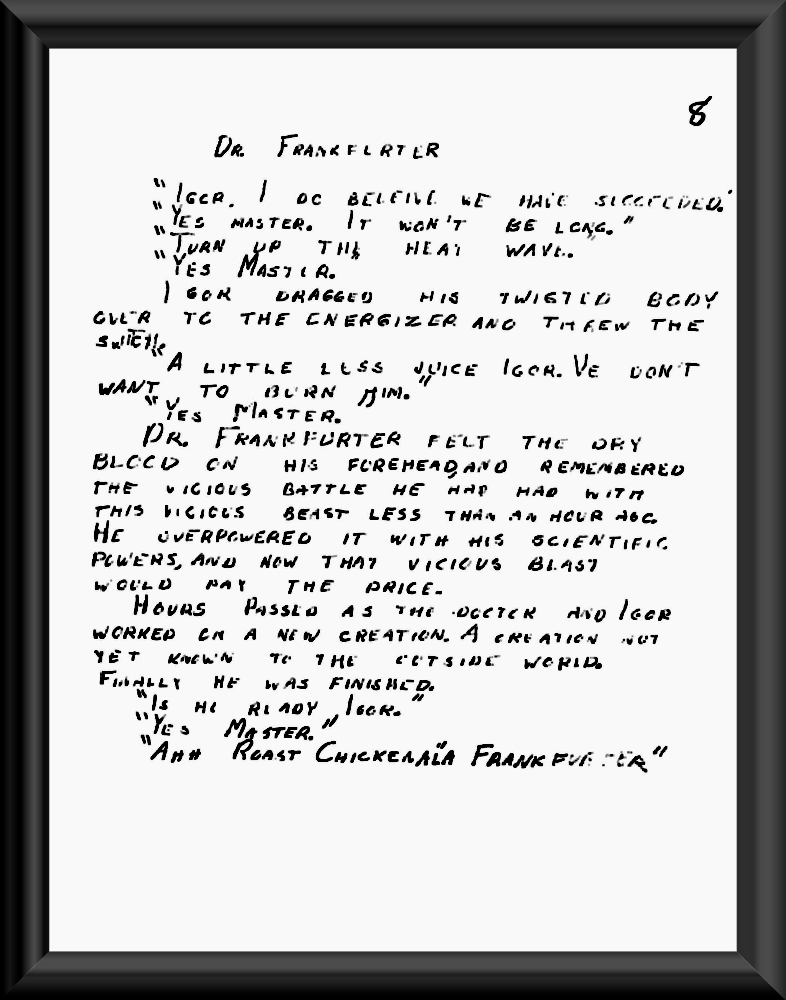 8
Dr. Frankfurter
"Igor. I do beleive we have succeeded."
"Yes master. It won't be long."
"Turn up the heat wave."
"Yes Master.
Igor dragged his twisted body
over to the energizer and threw the
switch.
"A little less juice Igor. Ve don't
want to burn him."
"Yes Master.
Dr. Frankfurter felt the dry
blood on his forehead, and remembered
the vicious battle he had had with
this vicious beast less than an hour ago.
He overpowered it with his scientific
powers, and now that vicious beast
would pay the price.
Hours passed as the doctor and Igor
worked on a new creation. A creation not
yet known to the outside world.
Finally he was finished.
"Is he ready Igor."
"Yes Master."
"Ahh Roast Chicken a'la Frankfurter"